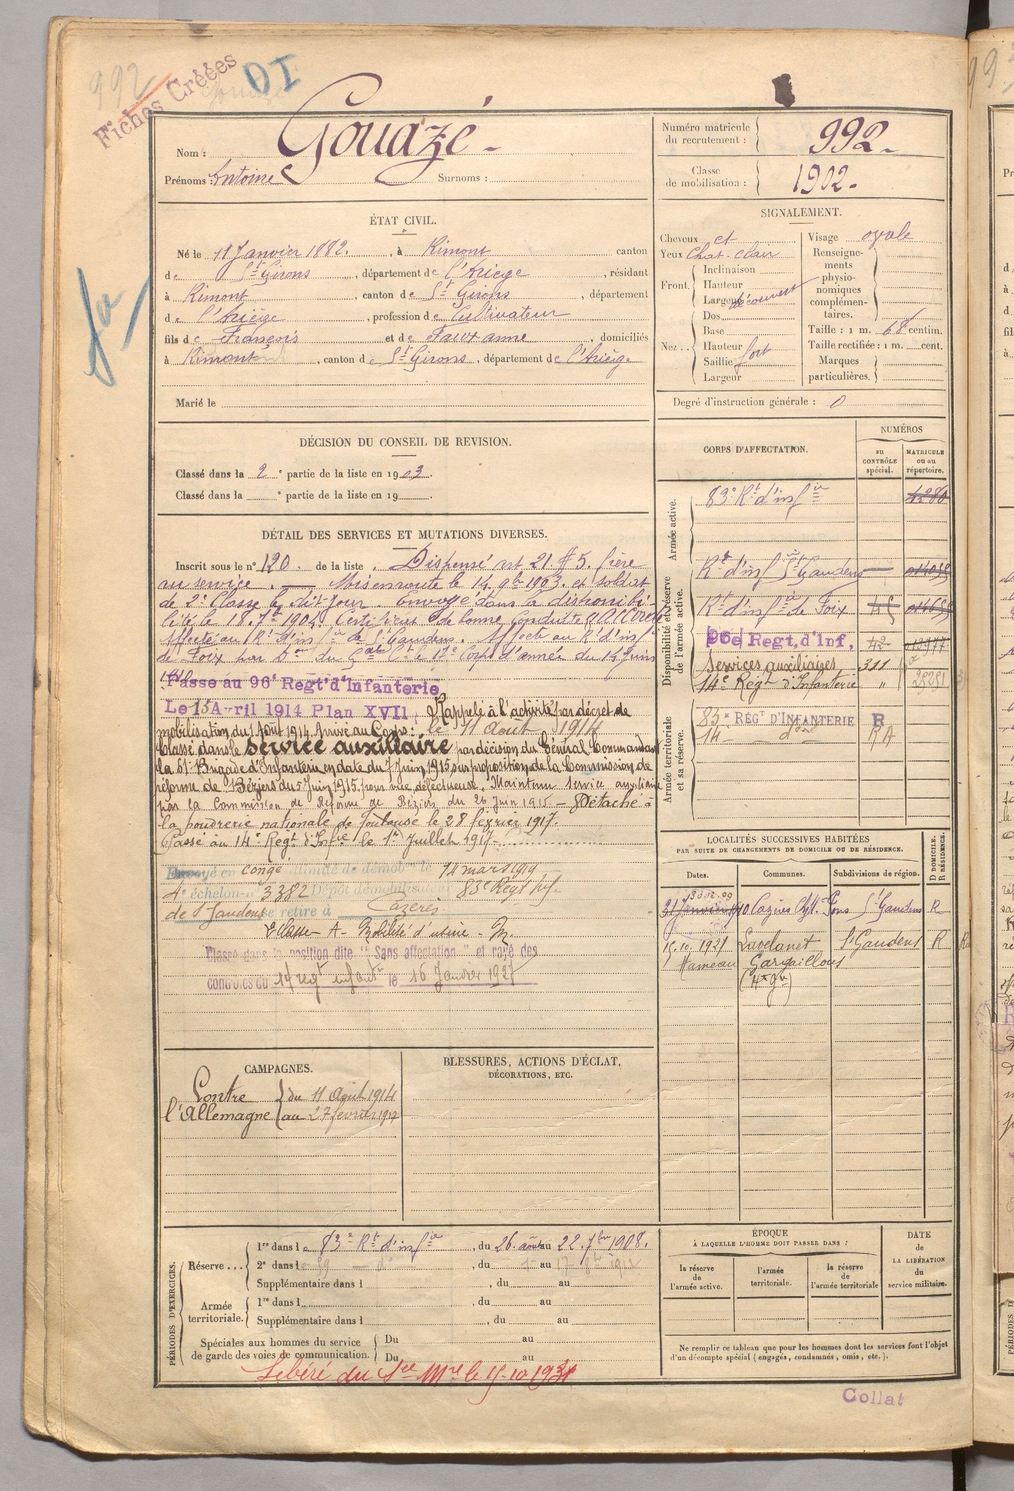 992
Fiches Créées
DI
Nom : Gouazé
Prénoms : Antoine Surnoms :
Numéro matricule du recrutement : 992
Classe de mobilisation : 1902
ÉTAT CIVIL.
Né le 11 Janvier 1882, à Rimont canton
de St Girons, département de l'Ariège, résidant
à Rimont, canton de St Girons, département
de l'Ariège, profession de Cultivateur
fils de François et de domiciliés
à Rimont, canton de St Girons, département de l'Ariège
Marié le
SIGNALEMENT.
Cheveux ct
Yeux Chat. clair
Front. Inclinaison
Hauteur
Largeur découvert
Nez.. Dos
Base
Hauteur
Saillie fort
Largeur
Visage ovale
Renseignements physionomiques complémentaires.
Taille : 1 m. 68 centim.
Taille rectifiée : 1 m. cent.
Marques particulières.
Degré d'instruction générale : 0
DÉCISION DU CONSEIL DE REVISION.
Classé dans la 2e partie de la liste en 1903.
Classé dans la e partie de la liste en 19
DÉTAIL DES SERVICES ET MUTATIONS DIVERSES.
Inscrit sous le n° 120 de la liste. Dispensé art. 21. § 5. frère
au service. — Mis en route le 14. 9bre 1903. et soldat
de 2e Classe le dit jour. Envoyé dans la disponibi-
lité le 18. 7bre 1904. Certificat de bonne conduite accordé
Affecté au Rt d'infie de St Gaudens. Affecté au Rt d'infie
de Foix par du 17e Corps d'armée du 14 Juin
Passé au 96e Regt d'Infanterie
Le 15 Avril 1914 Plan XVII, Rappelé à l'activité par décret de
mobilisation du 1 août 1914 Arrivé au Corps le 11 Août 1914
Classé dans le service auxiliaire par décision du Général Commandant
la 61e Brigade d'Infanterie en date du 7 Juin 1915 sur proposition de la Commission de
réforme de Béziers du 5 Juin 1915 pour vue défectueuse. Maintenu service auxiliaire
par la Commission de Réforme de Béziers du 26 Juin 1915 — Détaché à
la poudrerie nationale de Toulouse le 28 février 1917.
Passé au 14e Regt d'Infie le 1er Juillet 1917
Envoyé en congé illimité de démobn le 14 mars 1919
4e échelon n° 3382 Dépôt démobilisateur 83e Régt Inf
de St Gaudens se retire à Cazères
Classé dans la position dite "Sans affectation" et rayé des
contrôles du 14 regt infantie le 16 Janvier 1927
CORPS D'AFFECTATION.
NUMÉROS
AU CONTRÔLE spécial.
MATRICULE ou au répertoire.
Armée active.
83e Rt d'infie
4280
Disponibilité et réserve de l'armée active.
Rt d'infie St Gaudens
Rt d'infie de Foix
96e Regt, d'Inf.
Services auxiliaires 311
14e Régt d'Infanterie "
Armée territoriale et sa réserve.
83e RÉGt D'INFANTERIE R
14 — do RA
LOCALITÉS SUCCESSIVES HABITÉES
PAR SUITE DE CHANGEMENTS DE DOMICILE OU DE RÉSIDENCE.
Dates. Communes. Subdivisions de région. D DOMICILE. R RÉSIDENCE.
St Gaudens R
Lavelanet St Gaudens R
Hameau
(Hte Gne)
CAMPAGNES.
Contre l'Allemagne
du 11 Août 1914
au 27 février 1917
BLESSURES, ACTIONS D'ÉCLAT,
DÉCORATIONS, ETC.
PÉRIODES D'EXERCICES.
Réserve...
1re dans le 83e Rt d'infie, du 26. août au 22. 7bre 1908.
2e dans le do, du 1er au 17
Supplémentaire dans l , du au
Armée territoriale.
1re dans l , du au
Supplémentaire dans l , du au
Spéciales aux hommes du service de garde des voies de communication.
Du au
Du au
Libéré du Sce Mre le 15-10-1931
ÉPOQUE
À LAQUELLE L'HOMME DOIT PASSER DANS :
la réserve de l'armée active.
l'armée territoriale.
la réserve de l'armée territoriale
DATE DE LA LIBÉRATION du service militaire.
Ne remplir ce tableau que pour les hommes dont les services font l'objet
d'un décompte spécial (engagés, condamnés, omis, etc.).
Collat